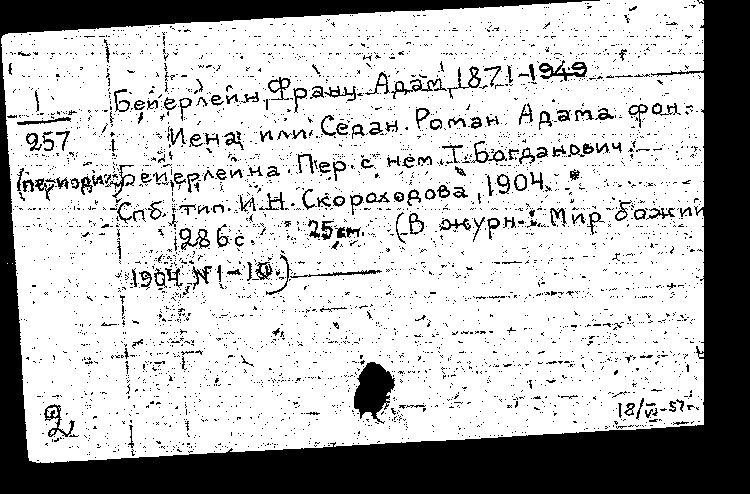 1
257
(периодич.)
Бейерлейн, Франц Адам, 1871-1949
Иена или Седан. Роман Адама фон-
Бейерлейна. Пер. с нем. Т. Богданович.
Спб. тип. И.Н. Скороходова, 1904. *
286с. 25см. (В журн.: Мир божий
1904 №1-10.)
2,
18/VI-57г.